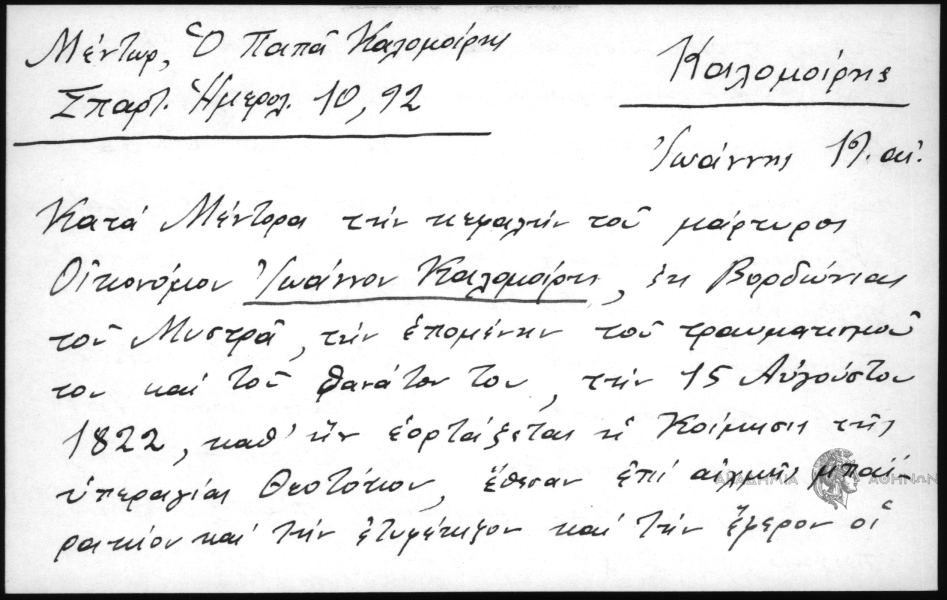 Μέντωρ, Ὁ Παπᾶ Καλομοίρης
Σπαρτ. Ἡμερολ. 10, 92
Καλομοίρης
Ἰωάννης 19. αἰ.
Κατά Μέντορα τήν κεφαλήν τοῦ μάρτυρος
Οἰκονόμου Ἰωάννου Καλομοίρη, ἐκ Βορδώνιας
τοῦ Μυστρᾶ, τήν ἑπομένην τοῦ τραυματισμοῦ
του καί τοῦ θανάτου του, τήν 15 Αὐγούστου
1822, καθ' ἥν ἑορτάζεται ἡ Κοίμησις τῆς
ὑπεραγίας Θεοτόκου, ἔθεσαν ἐπί αἰχμῆς μπαϊ-
ρακίου καί τήν καί τήν οἱ
ΑΚΑΔΗΜΙΑ ΑΘΗΝΩΝ